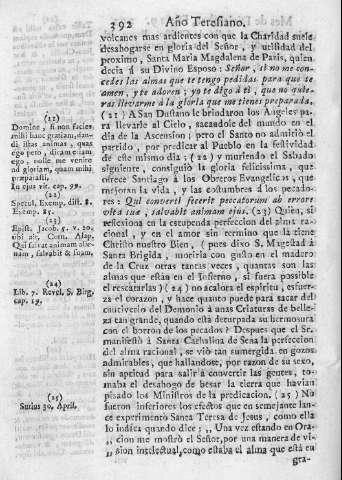 392 Año Teresiano.
volcanes mas ardientes con que la Charidad suele
desahogarse en gloria del Señor, y utilidad del
proximo, Santa Maria Magdalena de Pazis, quien
decia á su Divino Esposo: Señor, si no me con-
cedes las almas que te tengo pedidas, para que te
amen, y te adoren; yo te digo á ti, que no quie-
ras llevarme á la gloria que me tienes preparada.
(21) A San Dustano le brindaron los Angeles pa-
ra llevarle al Cielo, sacandole del mundo en el
dia de la Ascension; pero el Santo no admitió el
partido, por predicar al Pueblo en la festividad
de este mismo dia: (22) y muriendo el Sabado
siguiente, consiguió la gloria felicissima, que
ofrece Santiago á los Obreros Evangelicos, que
mejoran la vida, y las costumbres á los pecado-
res: Qui converti fecerit peccatorum ab errore
vitæ suæ, salvabit animam ejus. (23) Quien, si
reflexiona en la estupenda perfeccion del alma ra-
cional, y en el amor sin termino que la tiene
Christo nuestro Bien, (pues dixo S. Magestad á
Santa Brigida, moriria con gusto en el madero
de la Cruz otras tantas veces, quantas son las
almas que están en el Infierno, si fuera possible
el rescatarlas) (24) no acalora el espiritu, esfuer-
za el corazon, y hace quanto puede para sacar del
cautiverio del Demonio á unas Criaturas de belleza
tan grande, quando está deturpada su hermosura
con el borron de los pecados? Despues que el Sr.
manifestó á Santa Cathalina de Sena la perfeccion
del alma racional, se vió tan sumergida en gozos
admirables, que hallandose, por razon de su sexo,
sin aptitud para salir á convertir las gentes, to-
maba el desahogo de besar la tierra que havian
pisado los Ministros de la predicacion. (25) No
fueron inferiores los efectos que en semejante lan-
ce experimentó Santa Teresa de Jesus, como ella
lo indica quando dice: ,, Una vez estando en Ora-
,, cion me mostró el Señor, por una manera de vi-
,, sion intelectual, como estaba el alma que está en
gra-
(21)
Domine, si non facies
mihi hanc gratiam, dan-
di istas animas, quas
ego peto, dicam etiam
ego, nolle me venire
ad gloriam, quam mihi
præparasti.
In ejus vit. cap. 99.
(22)
Specul. Exemp. dist. 8.
Exemp. 85.
(23)
Epist. Jacob. 5. v. 20.
ubi Alap.
Qui salvat animam alie-
nam, salvabit & suam.
(24)
Lib. 7. Revel. S. Birg.
cap. 19.
(25)
Surius 30. April.